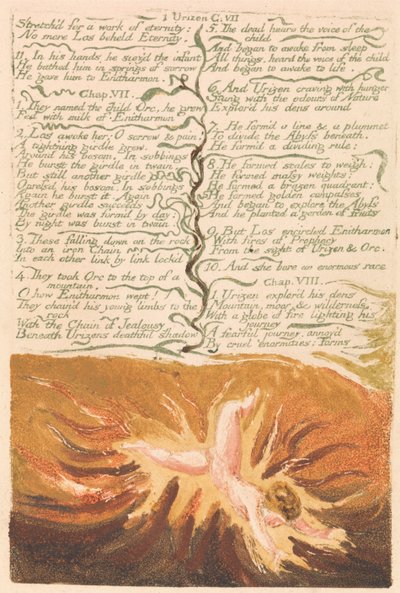 1 Urizen C. VII
Stretch'd for a work of eternity;
No more Los beheld Eternity.
11. In his hands he siez'd the infant
He bathed him in springs of sorrow
He gave him to Enitharmon.
Chap. VII.
1. They named the child Orc, he grew
Fed with milk of Enitharmon
2. Los awoke her; O sorrow & pain!
A tight'ning girdle grew,
Around his bosom. In sobbings
He burst the girdle in twain,
But still another girdle
Opressd his bosom, In sobbings
Again he burst it. Again
Another girdle succeeds
The girdle was form'd by day;
By night was burst in twain.
3. These falling down on the rock
Into an iron Chain
In each other link by link lock'd
4. They took Orc to the top of a
mountain.
O how Enitharmon wept!
They chain'd his young limbs to the
rock
With the Chain of Jealousy
Beneath Urizens deathful shadow
5. The dead heard the voice of the
child
And began to awake from sleep
All things. heard the voice of the child
And began to awake to life.
6. And Urizen craving with hunger
Stung with the odours of Nature
Explor'd his dens around
7. He form'd a line & a plummet
To divide the Abyss beneath.
He form'd a dividing rule:
8. He formed scales to weigh;
He formed massy weights;
He formed a brazen quadrant;
He formed golden compasses
And began to explore the Abyss
And he planted a garden of fruits
9. But Los encircled Enitharmon
With fires of Prophecy
From the sight of Urizen & Orc.
10. And she bore an enormous race
Chap. VIII.
1. Urizen explor'd his dens
Mountain, moor, & wilderness,
With a globe of fire lighting his
journey
A fearful journey, annoy'd
By cruel enormities: forms